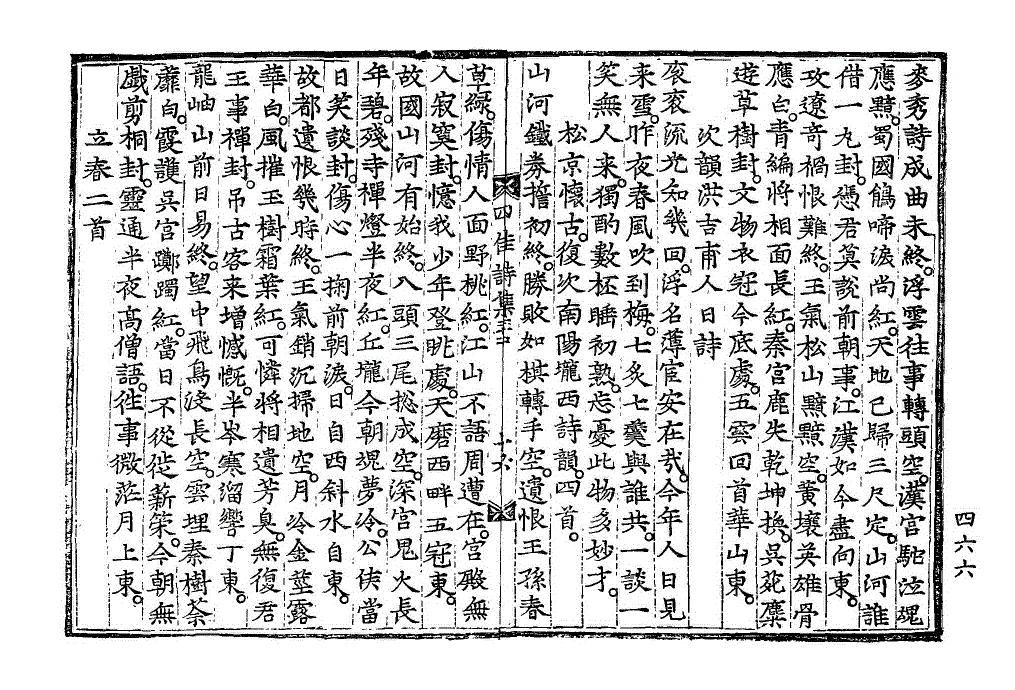 麥秀詩成曲未終浮雲往事轉頭空漢宮駝泣瑰
應黥蜀國鵑啼淚尚紅天地已歸三尺定山河誰
借一丸封憑君莫說前朝事江漢如今盡向東
攻遼奇禍恨難終王氣松山黯黯空黃壤英雄骨
應白青編將相面長紅秦宮鹿失乾坤換吳苑麋
遊草樹封文物衣冠今底處五雲回首華山東
次韻洪吉甫人日詩
袞袞流光知幾回浮名薄宦安在哉今年人日見
來雪昨夜春風吹到梅七炙七羹與誰共一談一
笑無人來獨酌數杯睡初熟忘憂此物多妙才
松京懷古復次南陽壠西詩韻四首
山河鐵券誓初終勝敗如棋轉手空遺恨王孫春
四佳詩集 十六
草綠傷情人面野桃紅江山不語周遭在宮殿無
人寂寞封憶我少年登眺處天磨西畔五冠東
故國山河有始終八頭三尾摠成空深宮鬼火長
年碧殘寺禪燈半夜紅丘壠今朝魂夢冷公侯當
日笑談封傷心一掬前朝淚日自西斜水自東
故都遺恨幾時終王氣銷沉掃地空月冷金莖露
華白風摧玉樹霜葉紅可憐將相遺芳臭無復君
王事禪封弔古客來增憾慨半岑寒溜響丁東
龍岫山前日易終望中飛鳥沒長空雲埋秦樹荼
蘼白霞護吳宮躑躅紅當日不從徙薪策今朝無
戱剪桐封靈通半夜高僧語往事微茫月上東
立春二首
四六六